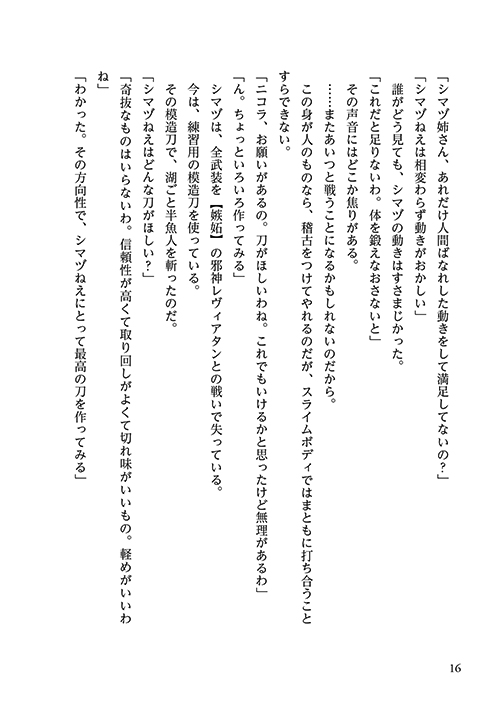 「シマヅ姉さん、あれだけ人間ばなれした動きをして満足してないの？」
「シマヅねえは相変わらず動きがおかしい」
誰がどう見ても、シマヅの動きはすさまじかった。
「これだと足りないわ。体を鍛えなおさないと」
その声音にはどこか焦りがある。
……またあいつと戦うことになるかもしれないのだから。
この身が人のものなら、稽古をつけてやれるのだが、スライムボディではまともに打ち合うこと
すらできない。
「ニコラ、お願いがあるの。刀がほしいわね。これでもいけるかと思ったけど無理があるわ」
「ん。ちょっといろいろ作ってみる」
シマヅは、全武装を【嫉妬】の邪神レヴィアタンとの戦いで失っている。
今は、練習用の模造刀を使っている。
その模造刀で、湖ごと半魚人を斬ったのだ。
「シマヅねえはどんな刀がほしい？」
「奇抜なものはいらないわ。信頼性が高くて取り回しがよくて切れ味がいいもの。軽めがいいわ
ね」
「わかった。その方向性で、シマヅねえにとって最高の刀を作ってみる」
16